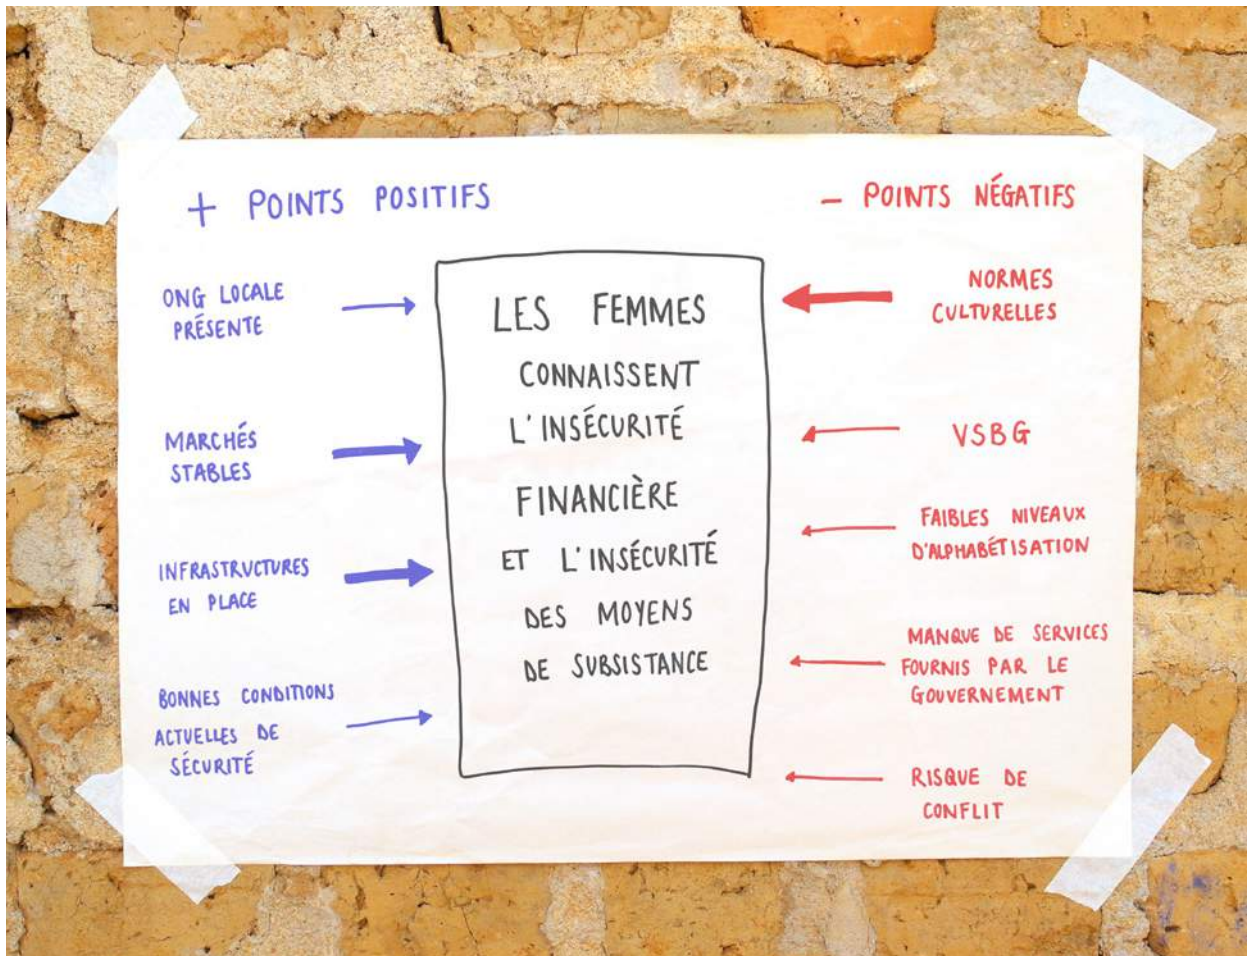 + POINTS POSITIFS
ONG LOCALE
PRÉSENTE
MARCHÉS
STABLES
INFRASTRUCTURES
EN PLACE
BONNES CONDITIONS
ACTUELLES DE
SÉCURITÉ
LES FEMMES
CONNAISSENT
L'INSÉCURITÉ
FINANCIÈRE
ET L'INSÉCURITÉ
DES MOYENS
DE SUBSISTANCE
- POINTS NÉGATIFS
NORMES
CULTURELLES
VSBG
FAIBLES NIVEAUX
D'ALPHABÉTISATION
MANQUE DE SERVICES
FOURNIS PAR LE
GOUVERNEMENT
RISQUE DE
CONFLIT